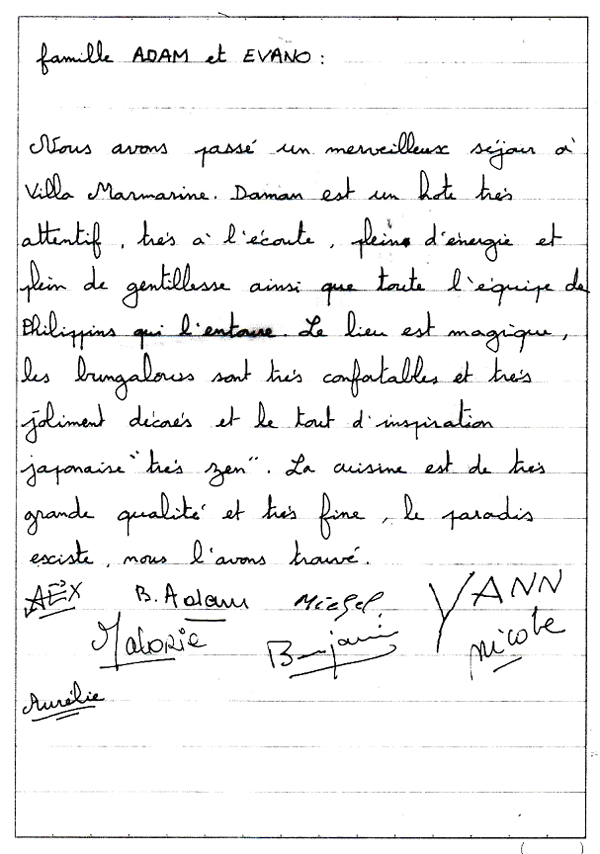 famille ADAM et EVANO :
Nous avons passé un merveilleux séjour à
Villa Marmarine. Daman est un hote très
attentif, très à l'écoute, plein d'énergie et
plein de gentillesse ainsi que toute l'équipe de
Philippins qui l'entoure. Le lieu est magique,
les bungalows sont très confortables et très
joliment décorés et le tout d'inspiration
japonaise "très zen". La cuisine est de très
grande qualité et très fine, le paradis
esciste, nous l'avons trouvé.
B. Adam YANN
Malorie Nicole
Aurélie